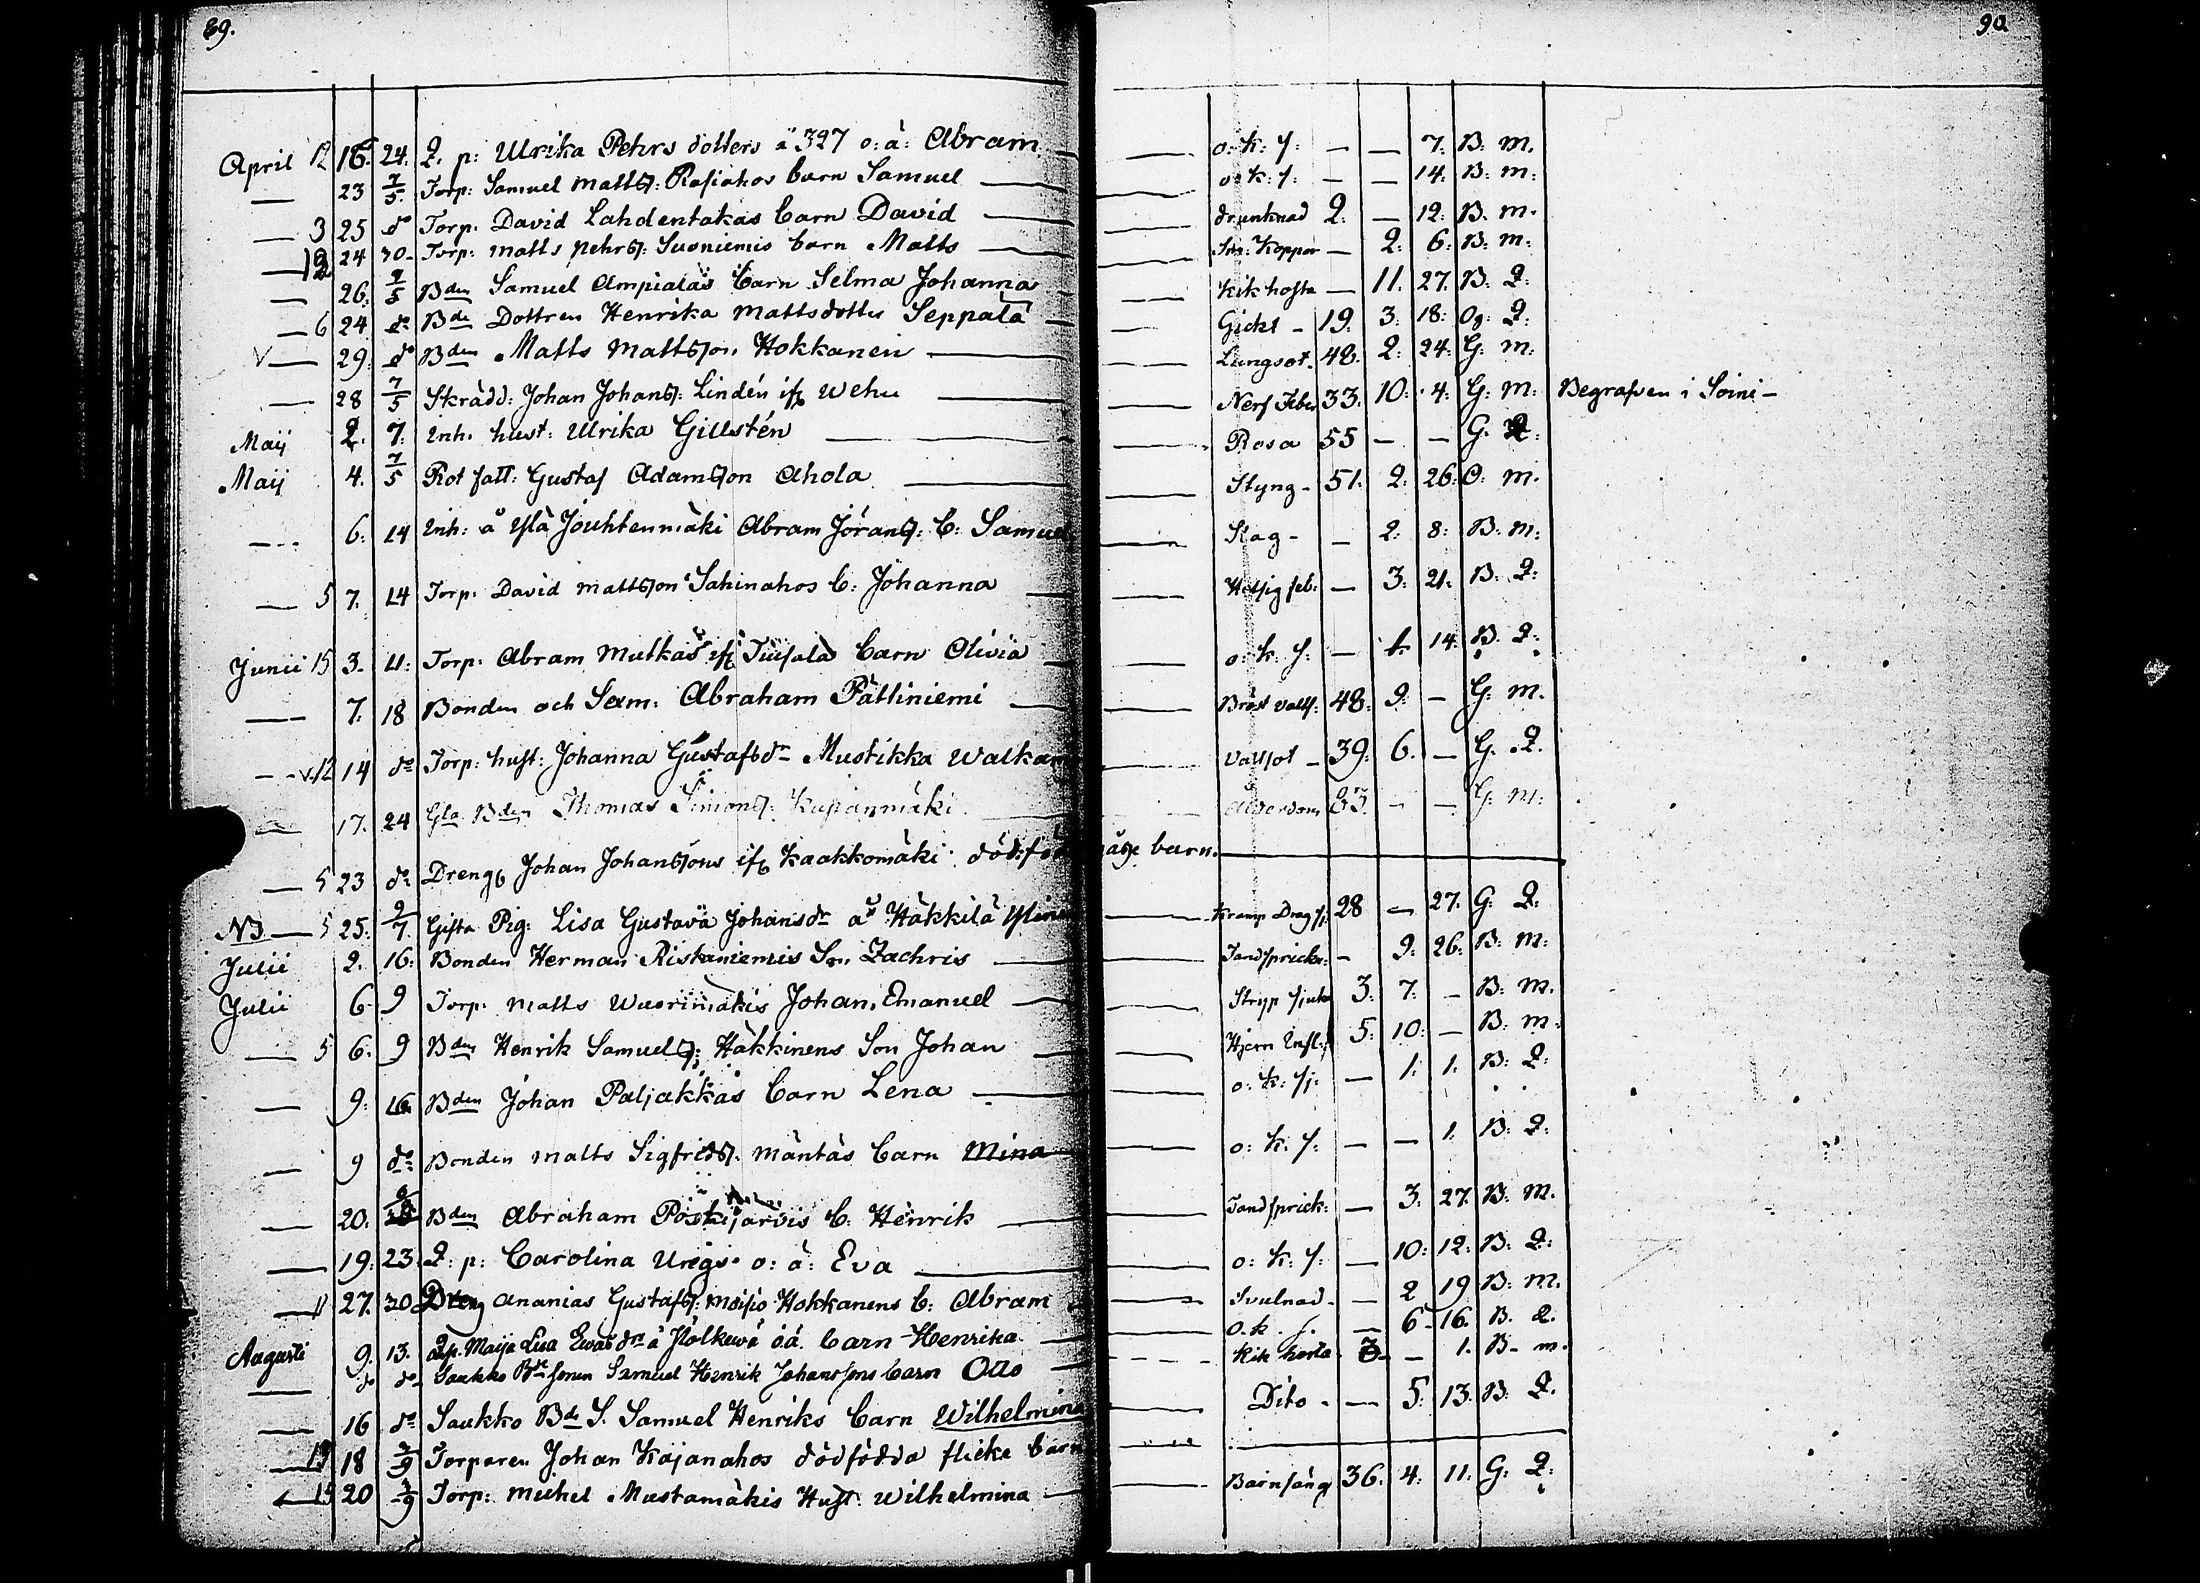 89. 90.
April 12 16. 24. Q. p: Ulrika Pehrs dotters å 327 o: ä: Abram — o: k: s: — — 7. B. m.
— 23 7/5. Torp: Samuel Matts: Rasiahos barn Samuel — o: k: s: — — 14. B: m:
— 3 25 do Torp. David Lahdentakas barn David — drunknad 2. — 12. B. m.
— 24 30. Torp: Matts Pehrs: Suoniemis barn Matts — Koppor — 2. 6. B: m:
— 26. 7/5 Bden Samuel Ampialäs barn Selma Johanna — Kikhosta — 11. 27. B. Q:
— 6 24 do Bde Dottren Henrika Mattsdotter Seppälä — Gickt — 19. 3. 18: Og: Q:
V — 29. do Bden Matts Mattsson Hokkanen — Lungsot. 48. 2: 24. G: m:
— 28 7/5 Skrädd: Johan Johans: Lindén ifr Wehu — Nerf Feber 33. 10. 4. G: m: Begrafven i Soini —
Maij 2. 7. Inh. hust: Ulrika Gillstén — Rosa 55 — — G. Q:
Maij 4. 7/5 Rot fatt: Gustaf Adamsson Ahola — Styng — 51. 2: 26. O. m.
— 6. 14 Inh: å Ylä Jouhtenmäki Abram Jörans: b: Samuel — Slag — — 2. 8: B: m:
— 5 7. 14 Torp. David Mattsson Sahinahos b: Johanna — Hetsig feb: — 3. 21. B. Q:
Junii 15 3. 11: Torp: Abram Mutkas ifr Tuisala barn Olivia — o: k: s: — 1. 14. B. Q:
— 7. 18 Bonden och Sexm: Abraham Pättiniemi — Bröst vatts: 48. 9. — G: m.
— v. 12 14 do Torp: hust: Johanna Gustafsdr Mustikka Walkam — Vattsot — 39. 6. — G. Q.
— 17. 24 Gla Bden Thomas Simons: Kupianmäki — Ålderdom 83. — — G: m:
— 5 23 do Dreng Johan Johanssons ifr Kaakkomäki dödfödt gåsse barn.
NB — 5 25. 2/7. Gifta Pig: Lisa Gustava Johansdr å Häkkilä — Kramp Drag sj: 28 — 27. G: Q.
Julii 2. 16: Bonden Herman Riskaniemis Son Zachris — Tandspricka: — 9. 26. B: m:
Julii 6. 9 Torp. Matts Wuorimäkis Johan Emanuel — Stryp sjuka 3. 7. — B: m.
— 5 6. 9 Bden Henrik Samuels: Häkkinens Son Johan — Hjern Infl: 5. 10: — B: m:
— 9. 16. Bden Johan Paljakkas barn Lena — o: k: sj: — 1. 1. B: Q:
— 9 do Bonden Matts Sigfrids: Mäntäs barn Mina — o: k: s: — — 1. B: Q:
— 20. Bden Abraham Poskijärvis b: Henrik — Tandsprick: — 3. 27. B: m.
— 19. 23. Q: p: Carolina Uregs. o: ä: Eva — o: k: s: — 10: 12: B: Q:
— 11 27. 30 Dreng Ananias Gustafs: Moisio Hokkanens b: Abram — Svulnad. — 2 19 B: m.
Augusti 9. 13. Qp. Maija Lisa Ewas dr å Pölkewä oä. barn Henrika. — o. k. s. — 6. 16. B. Q.
— do do Saukko Bde sonen Samuel Henrik Johanssons barn Otto — Kik hosta. 3. — 1. B. m.
— 16 do Saukko Bde S. Samuel Henriks barn Wilhelmina — Dito. — 5. 13. B: Q.
— 13 18 2/9 Torparen Johan Kajanahos dödfödda flicke barn
— 15 20 2/9 Torp: Michel Mustamäkis Hust: Wilhelmina — Barnsäng 36. 4. 11: G: Q: